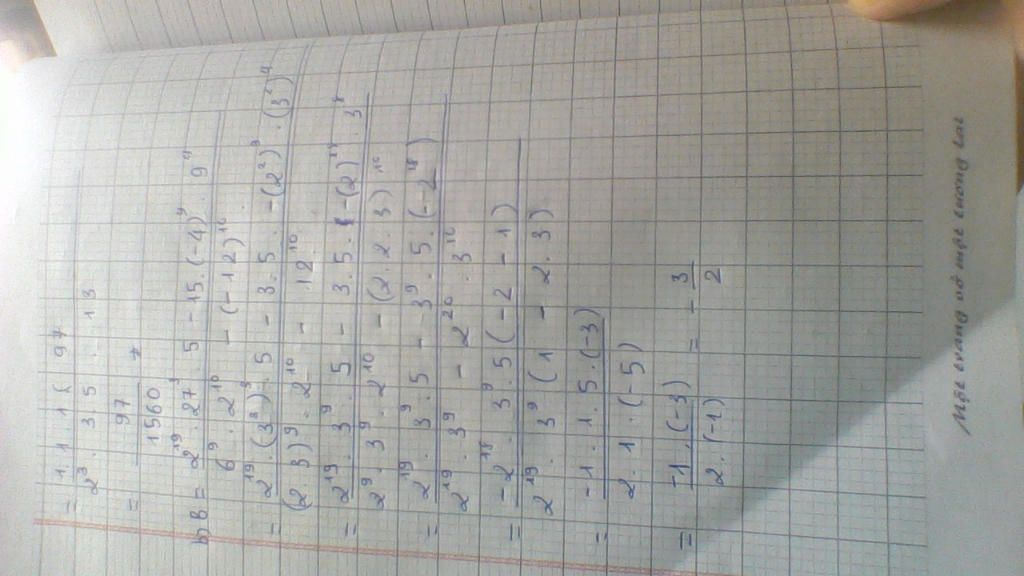 = 1.1.1.1.97 / 2³.3.5.13
= 97 / 1560
b) B = 2¹⁹.27³.5 - 15.(-4)⁹.9⁴ / 6⁹.2¹⁰ - (-12)¹⁰
= 2¹⁹.(3³)³.5 - 3.5.-(2²)⁹.(3²)⁴ / (2.3)⁹.2¹⁰ - 12¹⁰
= 2¹⁹.3⁹.5 - 3.5.-(2)¹⁸.3⁸ / 2⁹.3⁹.2¹⁰ - (2.2.3)¹⁰
= 2¹⁹.3⁹.5 - 3⁹.5.(-2¹⁸) / 2¹⁹.3⁹ - 2²⁰.3¹⁰
= -2¹⁸.3⁹.5(-2-1) / 2¹⁹.3⁹(1 - 2.3)
= -1.1.5.(-3) / 2.1.(-5)
= -1.(-3) / 2.(-1) = - 3 / 2